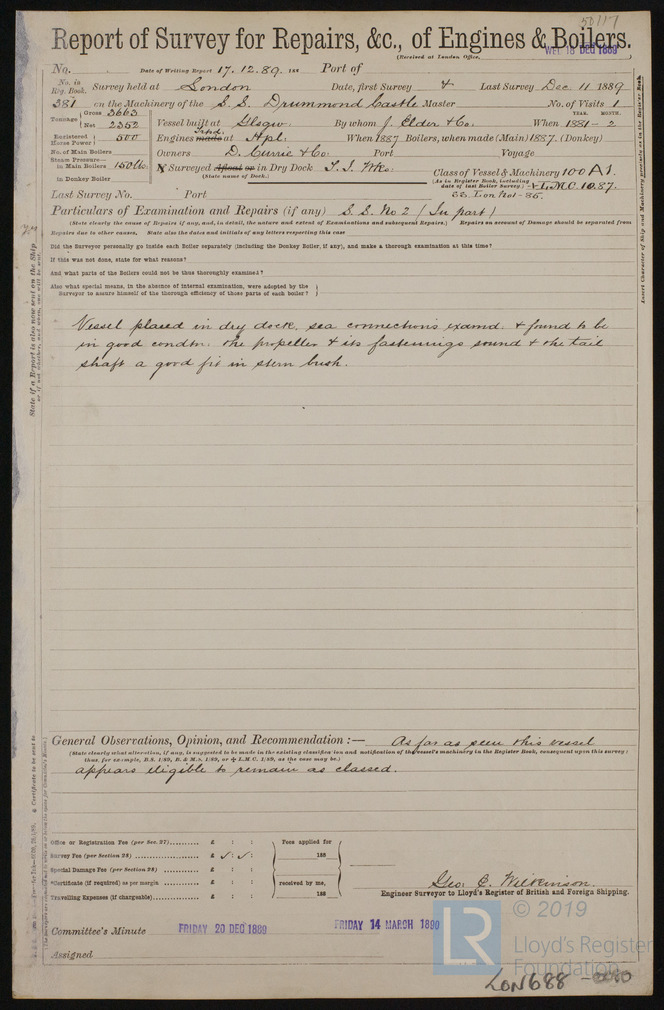 50117
Report of Survey for Repairs, &c., of Engines & Boilers.
(Received at London Office, WED 18 DEC 1889
No. Date of Writing Report 17.12.89. 188 Port of
No. in Reg. Book. Survey held at London Date, first Survey & Last Survey Dec 11 1889
381 on the Machinery of the S.S. Drummond Castle Master No. of Visits 1
Tonnage Gross 3663 YEAR. MONTH.
Net 2352 Vessel built at Glsgw. By whom J. Elder & Co. When 1881 - 2
Registered Horse Power 500 Engines made at Hpl. When 1887 Boilers, when made (Main) 1887. (Donkey)
No. of Main Boilers Owners D. Currie & Co. Port Voyage
Steam Pressure— in Main Boilers 150 lb. Surveyed Afloat or in Dry Dock T.I. Wks. Class of Vessel & Machinery 100 A1.
in Donkey Boiler (State name of Dock.) (As in Register Book, including date of last Boiler Survey.) L.M.C. 10.87.
Last Survey No. Port
Particulars of Examination and Repairs (if any) S.S. No 2 (In part)
(State clearly the cause of Repairs if any, and, in detail, the nature and extent of Examinations and subsequent Repairs.) Repairs on account of Damage should be separated from
Repairs due to other causes, State also the dates and initials of any letters respecting this case
Did the Surveyor personally go inside each Boiler separately (including the Donkey Boiler, if any), and make a thorough examination at this time?
If this was not done, state for what reasons?
And what parts of the Boilers could not be thus thoroughly examined?
Also what special means, in the absence of internal examination, were adopted by the
Surveyor to assure himself of the thorough efficiency of those parts of each boiler?
Vessel placed in dry dock, sea connections examd. & found to be
in good condtn. the propeller & its fastenings sound & the tail
shaft a good fit in stern bush.
General Observations, Opinion, and Recommendation :— As far as seen this vessel
(State clearly what alteration, if any, is suggested to be made in the existing classification and notification of the vessel's machinery in the Register Book, consequent upon this survey:
thus, for example, B.S. 1/89, B. & M.S. 1/89, or L.M.C. 1/89, as the case may be.)
appears eligible to remain as classed.
Office or Registration Fee (per Sec. 27) £ : : Fees applied for
Survey Fee (per Section 28) £ : : 188
Special Damage Fee (per Section 28) £ : :
*Certificate (if required) as per margin £ : : received by me,
Travelling Expenses (if chargeable) £ : : 188
Geo. C. Wilkinson.
Engineer Surveyor to Lloyd's Register of British and Foreign Shipping.
Committee's Minute FRIDAY 20 DEC 1889 FRIDAY 14 MARCH 1890
Assigned
© 2019
LR Lloyd's Register
Foundation
LON688 - 0080
State if a Report is also now sent on the Ship
Insert Character of Ship and Machinery precisely as in the Register Book.